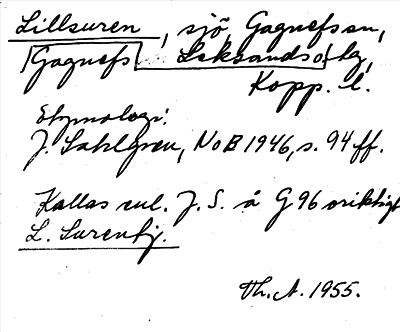 Lillsuren, sjö, Gagnefs sn,
Gagnefs Leksands o. hg,
Kopp. l.
Etymologi:
J. Sahlgren, NoB 1946, s. 94 ff.
Kallas enl. J. S. å G 96 oriktigt
L. Surentj.
Th. A. 1955.